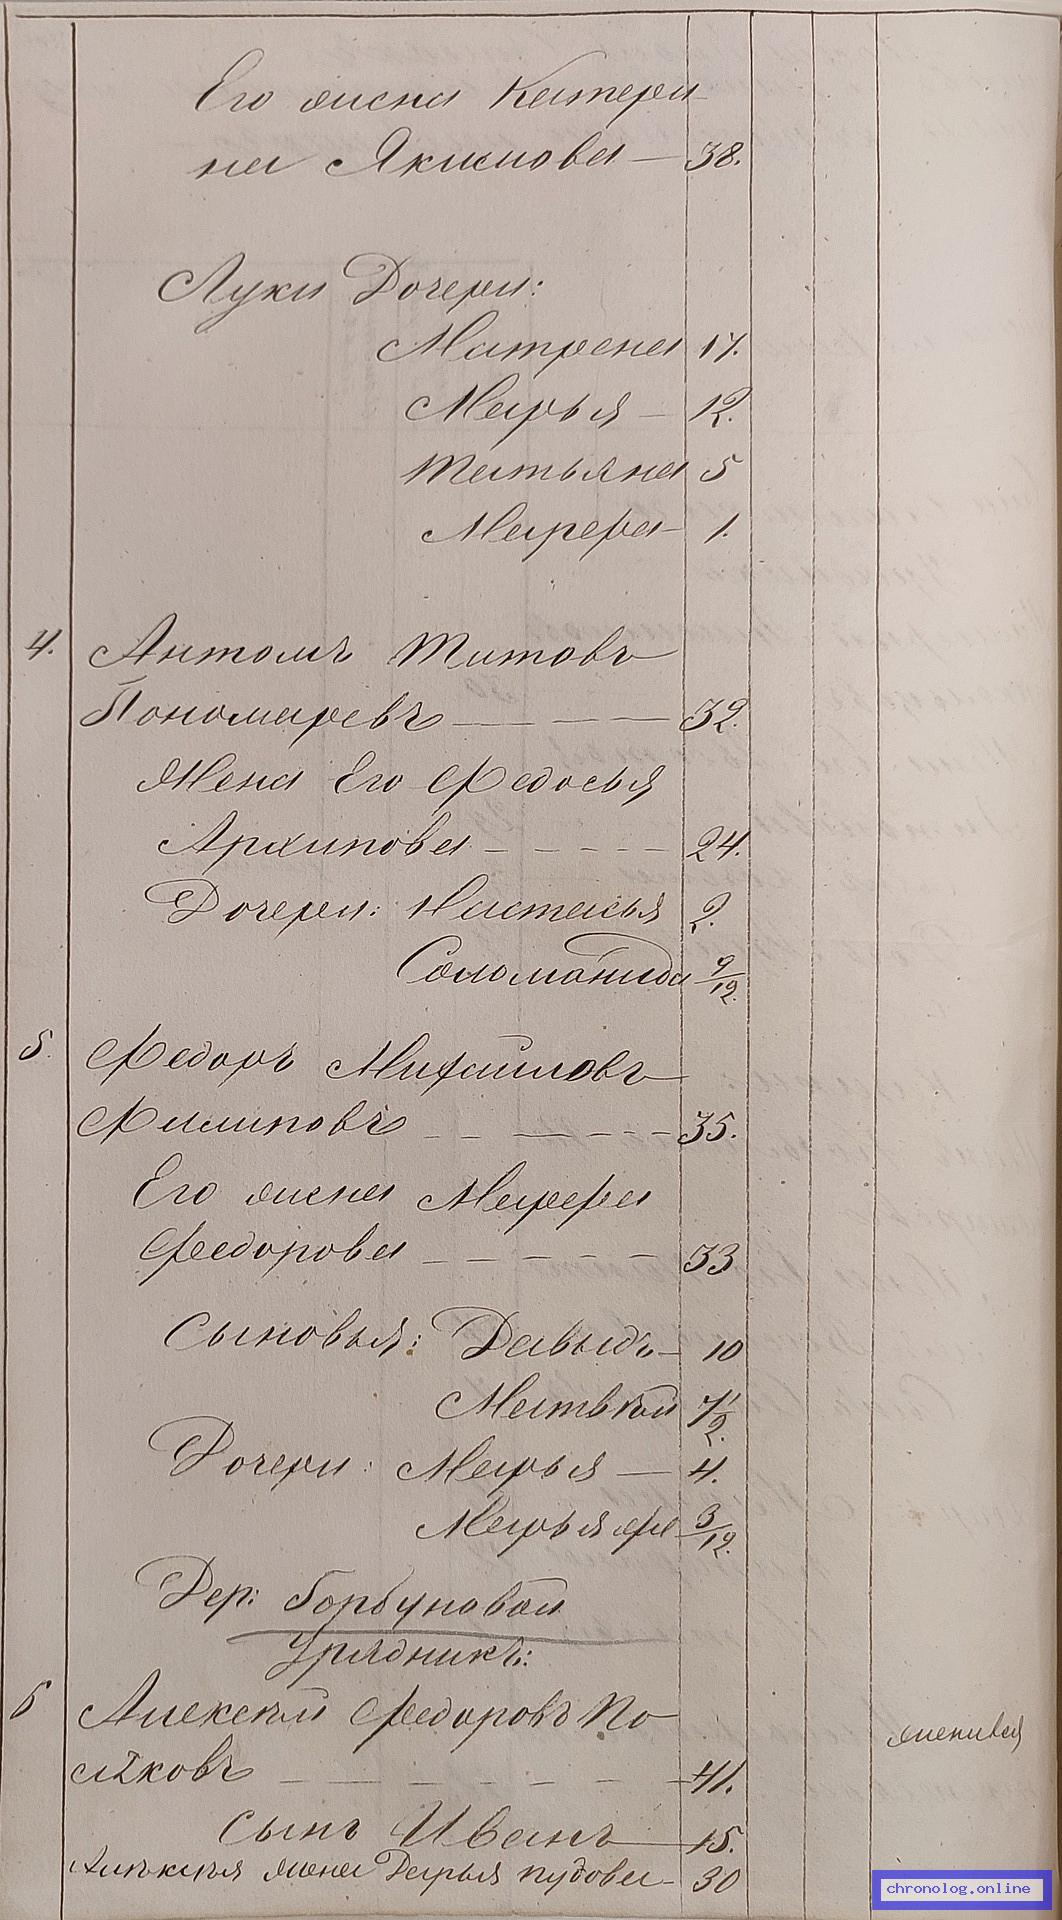 Его жена Катери
на Якимова — 38.
Луки Дочери:
Матрена 17.
Марья — 12.
Татьяна 5
Марфа — 1.
4. Антонъ Титовъ
Пономаревъ — — — 32.
Жена Его Федосья
Архипова — — — — — 24.
Дочери: Настасья 2.
Соломанида 9/12.
5. Федоръ Михайловъ
Филиповъ — — — — — 35.
Его жена Марфа
Федорова — — — — — 33
Сыновья: Давыдъ — 10
Матвѣй 7 1/2.
Дочери: Марья — 4.
Марья же 3/12.
Дер: Горбуновой
Урядникъ:
6 Алексѣй Федоровъ По женився
ляковъ — — — — — — 41.
Сынъ Иванъ — 15.
Алѣксѣя жена Дарья Пудова — 30
chronolog.online